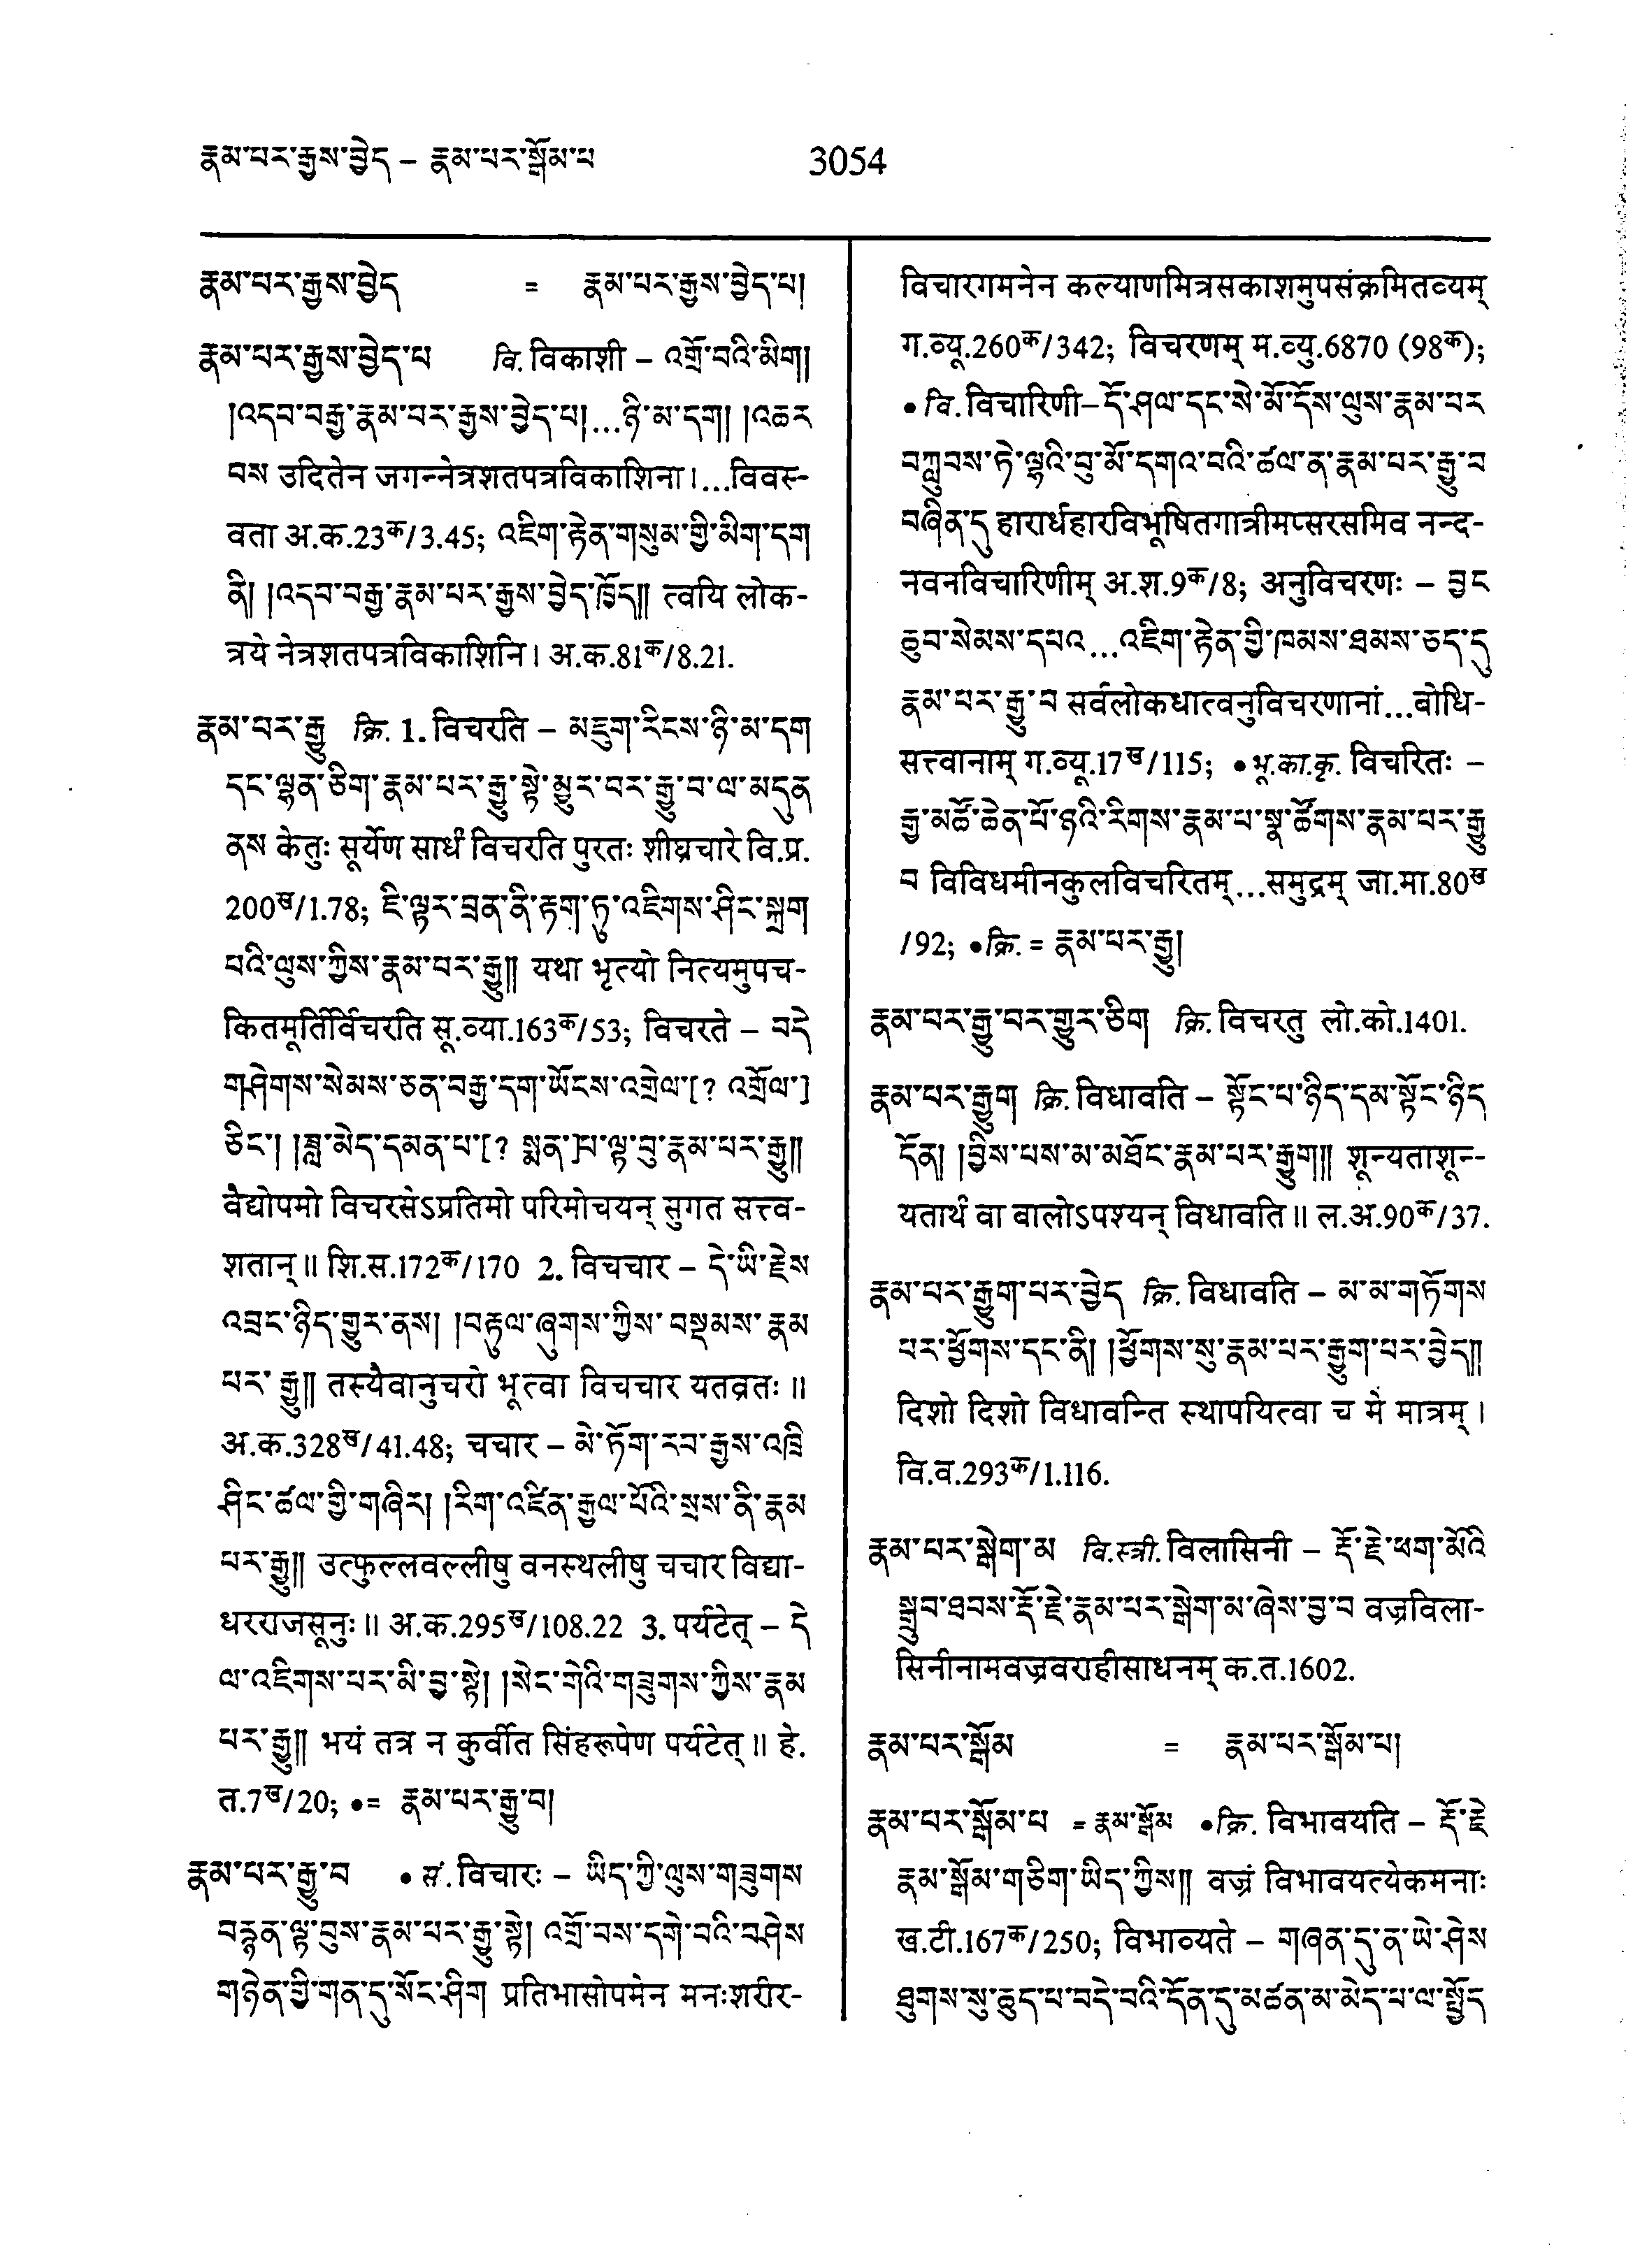 རྣམ་པར་རྒྱས་བྱེད – རྣམ་པར་སྒོམ་པ
3054
རྣམ་པར་རྒྱས་བྱེད = རྣམ་པར་རྒྱས་བྱེད་པ།
རྣམ་པར་རྒྱས་བྱེད་པ वि. विकाशी – འགྲོ་བའི་མིག།
།འདབ་བརྒྱ་རྣམ་པར་རྒྱས་བྱེད་པ།...ཉི་མ་དག། །འཆར
བས उदितेन जगन्नेत्रशतपत्रविकाशिना।...विवस्-
वता अ.क.23क/3.45; འཇིག་རྟེན་གསུམ་གྱི་མིག་དག
ནི། །འདབ་བརྒྱ་རྣམ་པར་རྒྱས་བྱེད་ཁྱོད།། त्वयि लोक-
त्रये नेत्रशतपत्रविकाशिनि। अ.क.81क/8.21.
རྣམ་པར་རྒྱུ क्रि. 1. विचरति – མཇུག་རིངས་ཉི་མ་དག
དང་ལྷན་ཅིག་རྣམ་པར་རྒྱུ་སྟེ་མྱུར་བར་རྒྱུ་བ་ལ་མདུན
ནས केतुः सूर्येण सार्धं विचरति पुरतः शीघ्रचारे वि.प्र.
200ख/1.78; ཇི་ལྟར་བྲན་ནི་རྟག་ཏུ་འཇིགས་ཤིང་སྐྲག
པའི་ལུས་ཀྱིས་རྣམ་པར་རྒྱུ།། यथा भृत्यो नित्यमुपच-
कितमूर्तिर्विचरति सू.व्या.163क/53; विचरते – བདེ
གཤེགས་སེམས་ཅན་བརྒྱ་དག་ཡོངས་འགྲེལ་[? འགྲོལ་]
ཅིང་། །བླ་མེད་དམན་པ་[? སྨན་]པ་ལྟ་བུ་རྣམ་པར་རྒྱུ།།
वैद्योपमो विचरसेऽप्रतिमो परिमोचयन् सुगत सत्त्व-
शतान्॥ शि.स.172क/170 2. विचचार – དེ་ཡི་རྗེས
འབྲང་ཉིད་གྱུར་ནས། །བརྟུལ་ཞུགས་ཀྱིས་ བསྡམས་ རྣམ
པར་ རྒྱུ།། तस्यैवानुचरो भूत्वा विचचार यतव्रतः॥
अ.क.328ख/41.48; चचार – མེ་ཏོག་རབ་རྒྱས་འཁྲི
ཤིང་ཚལ་གྱི་གཞིར། །རིག་འཛིན་རྒྱལ་པོའི་སྲས་ནི་རྣམ
པར་རྒྱུ།། उत्फुल्लवल्लीषु वनस्थलीषु चचार विद्या-
धरराजसूनुः॥ अ.क.295ख/108.22 3. पर्यटेत् – དེ
ལ་འཇིགས་པར་མི་བྱ་སྟེ། །སེང་གེའི་གཟུགས་ཀྱིས་རྣམ
པར་རྒྱུ།། भयं तत्र न कुर्वीत सिंहरूपेण पर्यटेत्॥ हे.
त.7ख/20; •= རྣམ་པར་རྒྱུ་བ།
རྣམ་པར་རྒྱུ་བ • सं. विचारः – ཡིད་ཀྱི་ལུས་གཟུགས
བརྙན་ལྟ་བུས་རྣམ་པར་རྒྱུ་སྟེ། འགྲོ་བས་དགེ་བའི་བཤེས
གཉེན་གྱི་གན་དུ་སོང་ཤིག प्रतिभासोपमेन मनःशरीर-
विचारगमनेन कल्याणमित्रसकाशमुपसंक्रमितव्यम्
ग.व्यू.260क/342; विचरणम् म.व्यु.6870 (98क);
• वि. विचारिणी–དོ་ཤལ་དང་སེ་མོ་དོས་ལུས་རྣམ་པར
བཀླུབས་ཏེ་ལྷའི་བུ་མོ་དགའ་བའི་ཚལ་ན་རྣམ་པར་རྒྱུ་བ
བཞིན་དུ हारार्धहारविभूषितगात्रीमप्सरसमिव नन्द-
नवनविचारिणीम् अ.श.9क/8; अनुविचरणः – བྱང
ཆུབ་སེམས་དཔའ...འཇིག་རྟེན་གྱི་ཁམས་ཐམས་ཅད་དུ
རྣམ་པར་རྒྱུ་བ सर्वलोकधात्वनुविचरणानां...बोधि-
सत्त्वानाम् ग.व्यू.17ख/115; • भू.का.कृ. विचरितः –
རྒྱ་མཚོ་ཆེན་པོ་ཉའི་རིགས་རྣམ་པ་སྣ་ཚོགས་རྣམ་པར་རྒྱུ
བ विविधमीनकुलविचरितम्...समुद्रम् जा.मा.80ख
/92; •क्रि. = རྣམ་པར་རྒྱུ།
རྣམ་པར་རྒྱུ་བར་གྱུར་ཅིག क्रि. विचरतु लो.को.1401.
རྣམ་པར་རྒྱུག क्रि. विधावति – སྟོང་པ་ཉིད་དམ་སྟོང་ཉིད
དོན། །བྱིས་པས་མ་མཐོང་རྣམ་པར་རྒྱུག།། शून्यताशून्-
यतार्थं वा बालोऽपश्यन् विधावति॥ ल.अ.90क/37.
རྣམ་པར་རྒྱུག་པར་བྱེད क्रि. विधावति – མ་མ་གཏོགས
པར་ཕྱོགས་དང་ནི། །ཕྱོགས་སུ་རྣམ་པར་རྒྱུག་པར་བྱེད།།
दिशो दिशो विधावन्ति स्थापयित्वा च मे मात्रम्।
वि.व.293क/1.116.
རྣམ་པར་སྒེག་མ वि.स्त्री. विलासिनी – རྡོ་རྗེ་ཕག་མོའི
སྒྲུབ་ཐབས་རྡོ་རྗེ་རྣམ་པར་སྒེག་མ་ཞེས་བྱ་བ वज्रविला-
सिनीनामवज्रवराहीसाधनम् क.त.1602.
རྣམ་པར་སྒོམ = རྣམ་པར་སྒོམ་པ།
རྣམ་པར་སྒོམ་པ = རྣམ་སྒོམ •क्रि. विभावयति – རྡོ་རྗེ
རྣམ་སྒོམ་གཅིག་ཡིད་ཀྱིས།། वज्रं विभावयत्येकमनाः
ख.टी.167क/250; विभाव्यते – གཞན་དུ་ན་ཡེ་ཤེས
ཐུགས་སུ་ཆུད་པ་བདེ་བའི་དོན་དུ་མཚན་མ་མེད་པ་ལ་སྤྱོད